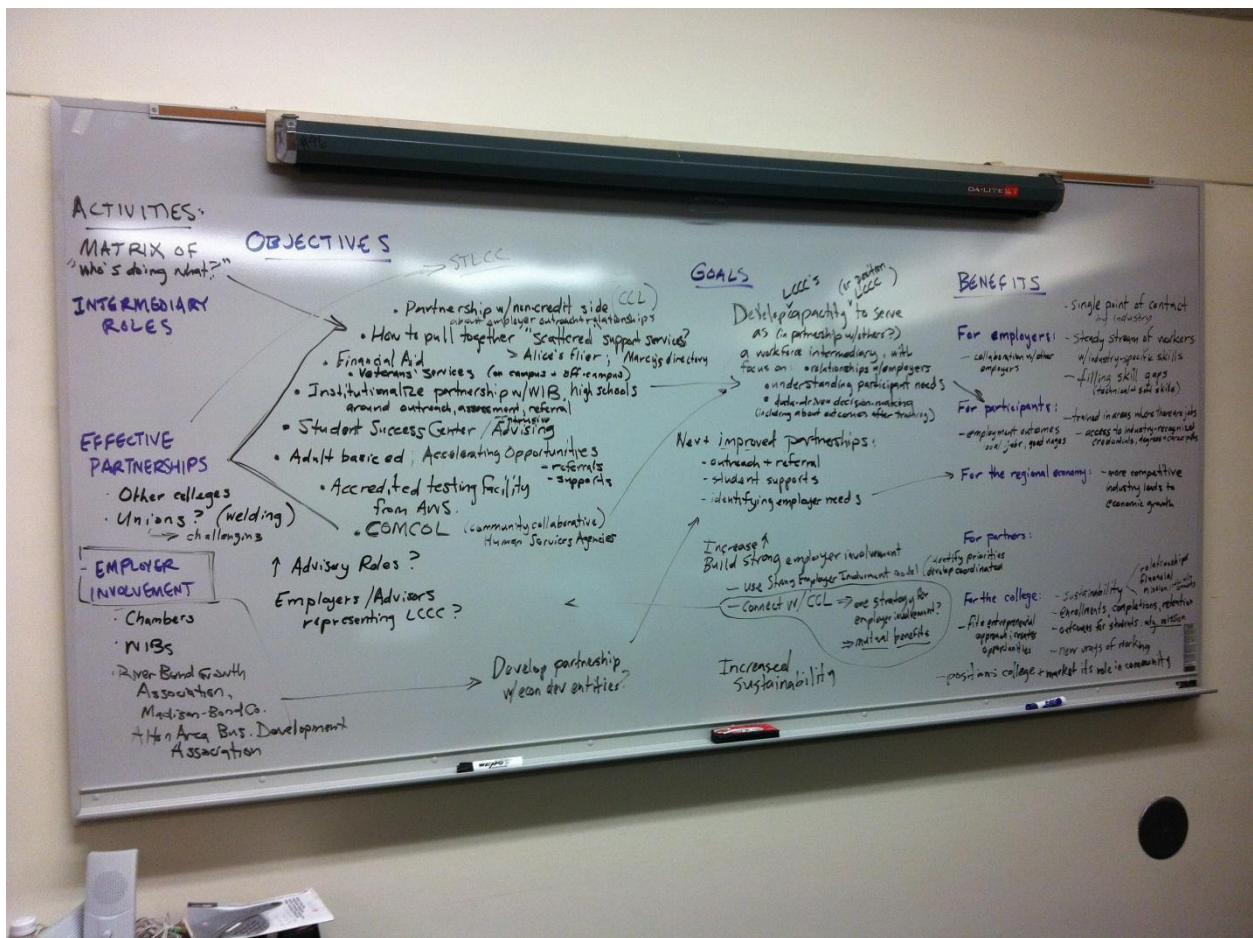 DA-LITE
ACTIVITIES:
MATRIX OF
"who's doing what?"
INTERMEDIARY
ROLES
EFFECTIVE
PARTNERSHIPS
· Other colleges
· Unions? (welding)
challenging
EMPLOYER
INVOLVEMENT
· Chambers
· WIBs
· River Bend Growth
Association,
Madison-Bond Co.
Alton Area Bus. Development
Association
OBJECTIVES
STLCC
· Partnership w/non-credit side (CCL)
about employer outreach + relationships
· How to pull together "scattered support services?"
> Alice's flier; Marcy's directory
· Financial Aid
· Veterans' services (on campus + off-campus)
· Institutionalize partnership w/WIB, high schools
around outreach, assessment, referral
· Student Success Center / Intrusive Advising
· Adult basic ed; Accelerating Opportunities
- referrals
- supports
· Accredited testing facility
from AWS.
· COMCOL (community collaborative)
Human Services Agencies
↑ Advisory Roles?
Employers/Advisors
representing LCCC?
Develop partnership
w/econ dev entities?
GOALS
LCCC's (or position LCCC)
Develop capacity to serve
as (in partnership w/others?)
a workforce intermediary, with
focus on: · relationships w/employers
· understanding participant needs
· data-driven decision-making
(including about outcomes after training)
New + improved partnerships:
- outreach + referral
- student supports
- identifying employer needs
Increase ↑
Build strong employer involvement
- use Strong Employer Involvement model (identify priorities
develop coordinated
- Connect w/CCL ⇒ one strategy for
employer involvement?
⇒ mutual benefits
Increased
sustainability
BENEFITS
- single point of contact
by industry
For employers:
- collaboration w/other
employers
- steady stream of workers
w/industry-specific skills
- filling skill gaps
(technical + soft skills)
For participants:
- employment outcomes
jobs, good wages
- trained in areas where there are jobs
- access to industry-recognized
credentials, degrees + career paths
For the regional economy:
- more competitive
industry leads to
economic growth
For partners:
For the college:
- sustainability
relationships
financial
mission
- enrollments, completions, retention
- fits entrepreneurial
approach; creates
opportunities
outcomes for students: mission
- new ways of working
- positions college + market its role in community